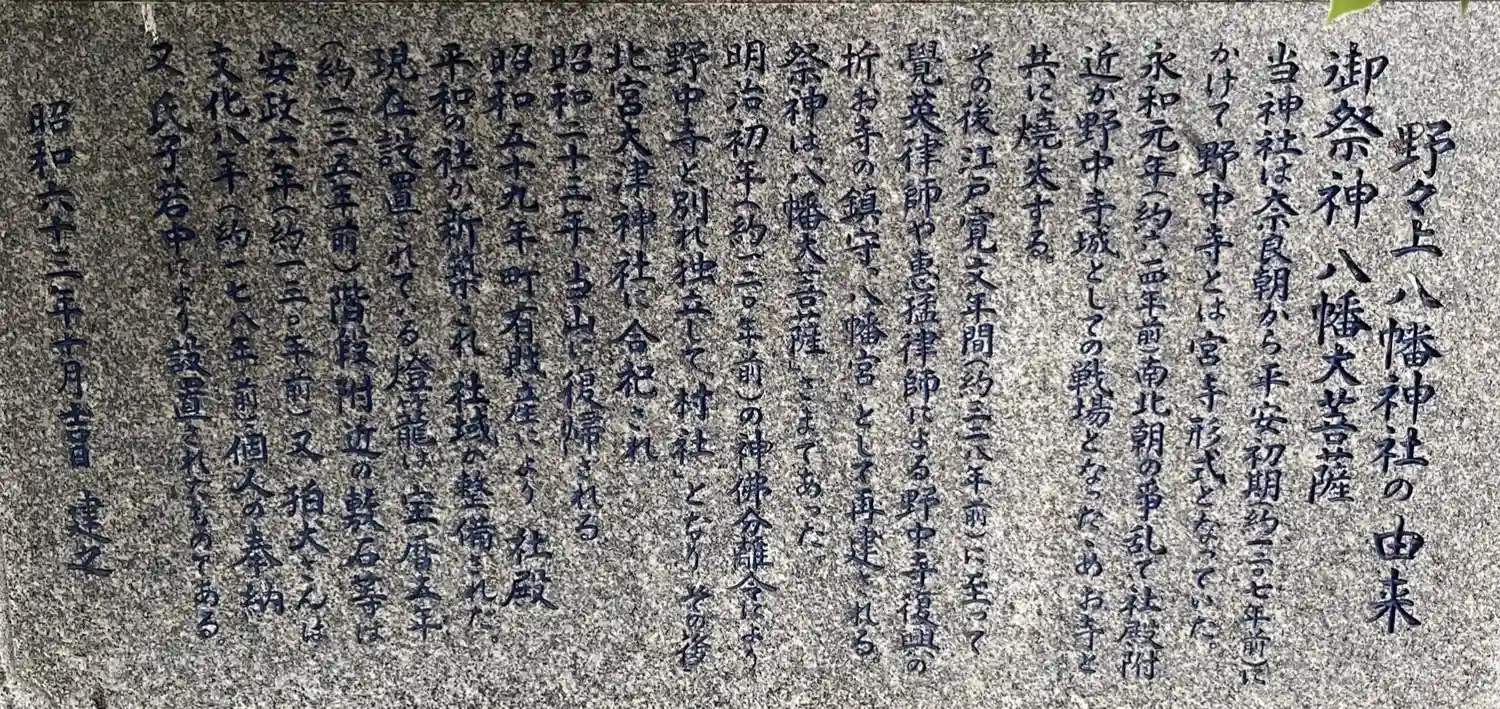 野々上八幡神社の由来
御祭神 八幡大菩薩
当神社は奈良朝から平安初期(約一二〇七年前)に
かけて野中寺とは宮寺形式となっていた。
永和元年(約六一四年前)南北朝の争乱で社殿附
近が野中寺城としての戦場となったためお寺と
共に焼失する。
その後江戸寛文年間(約三二八年前)に至って
覺英律師や惠猛律師による野中寺復興の
折お寺の鎮守「八幡宮」として再建される
祭神は「八幡大菩薩」さまであった
明治初年(約一二〇年前)の神佛分離令により
野中寺と別れ独立して「村社」となりその後
北宮大津神社に合祀され
昭和二十三年当山に復帰される
昭和五十九年町有財産により 社殿
平和の社が新築され社域が整備された。
現在設置されている燈籠は宝暦五年
(約二三五年前)階段附近の敷石等は
安政六年(約一三〇年前)又狛犬さんは
文化八年(約一七八年前)個人の奉納
又氏子若中により設置されたものである
昭和六十三年十月吉日 建之